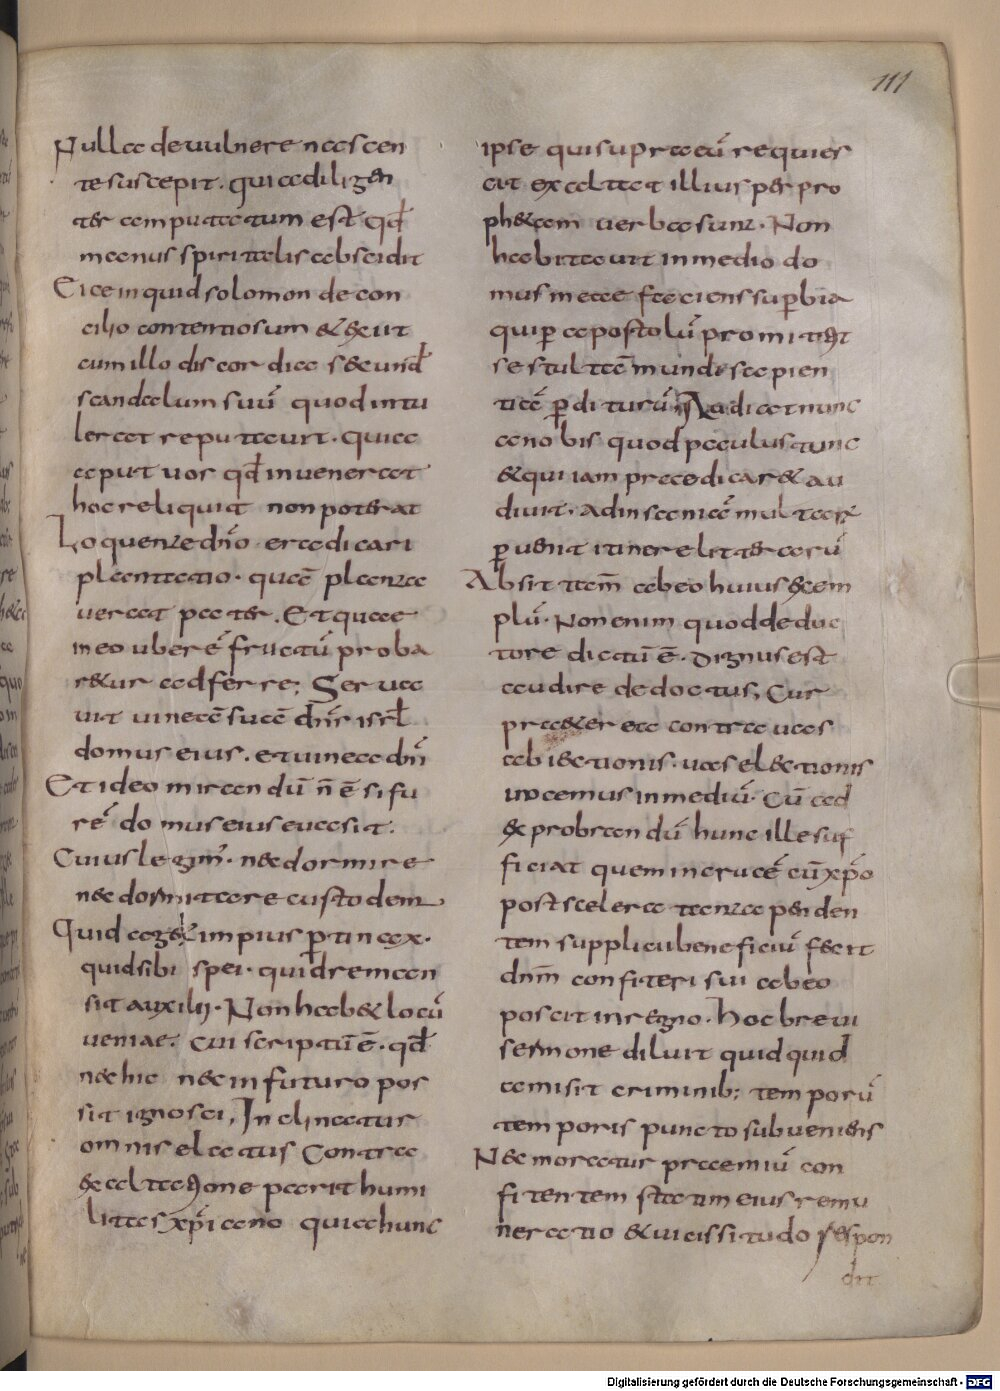 111
Nulla de uulnere nascen
te suscepit. qui adiligen
ter amputatum est qđ
manus spiritalis abscidit
Eice inquid solomon de con
cilio contentiosum & exiit
cum illo discordia s&unđ
scandalum suū quod intu
lerat reputauit. quia
caput uor qđ inuenerat
hoc reliquit non poterat
Loquenze dn̄o eradicari
plantatio. quā planza
uerat pater. Et quae
in eo uberē fructū proba
r&ur adferre; Seruca
uit uineā suā dn̄s isrł
domus eius. et uinea dn̄i
Et ideo mirandū n̄ ē si fu
rē domus eius euasit.
Cuius legim̄. nec dormire
nec dormitare custodem
Quid ag& impius pertinax.
quid sibi spei. quid reman
sit auxilij. Non hab& locū
ueniae. cui scriptū ē. qđ
nec hic nec in futuro pos
sit ignosci, Inclinatur
omnis elatus Contra
exaltatione parit humi
litas xp̄iano quia hunc
ipse qui supra eū requies
cit exaltat illius per pro
ph&am uerba sunz. Non
habitauit in medio do
mus meae faciens superbia
qui per apostolū promittet
se stultā mundi sapien
tiā perditurū; Audiat nunc
a nobis quod paulus tunc
& qui iam praedicare & au
diuit. Ad insaniā multaer
peruenit itinere litterarū
Absit tam̄ ab eo huius exem
plū. Non enim quod de duc
tore dictū ē. dignus est
audire de doctus; Cur
praeterea contra uas
abiectionis. uas electionis
uocemus in mediū. Cū ad
exprobrandū hunc ille suf
ficiat quem in crucē cū xp̄o
post scelera tanza penden
tem supplicii beneficiū fecit
dnm̄ confiteri sui ab eo
poscit in regno. hoc breui
sermone diluit quidquid
amisit criminib; temporū
temporis puncto subueniens
Nec moratur praemiū con
fitentem statim eius remu
neratio & uicissitudo respon
dit
Digitalisierung gefördert durch die Deutsche Forschungsgemeinschaft - DFG